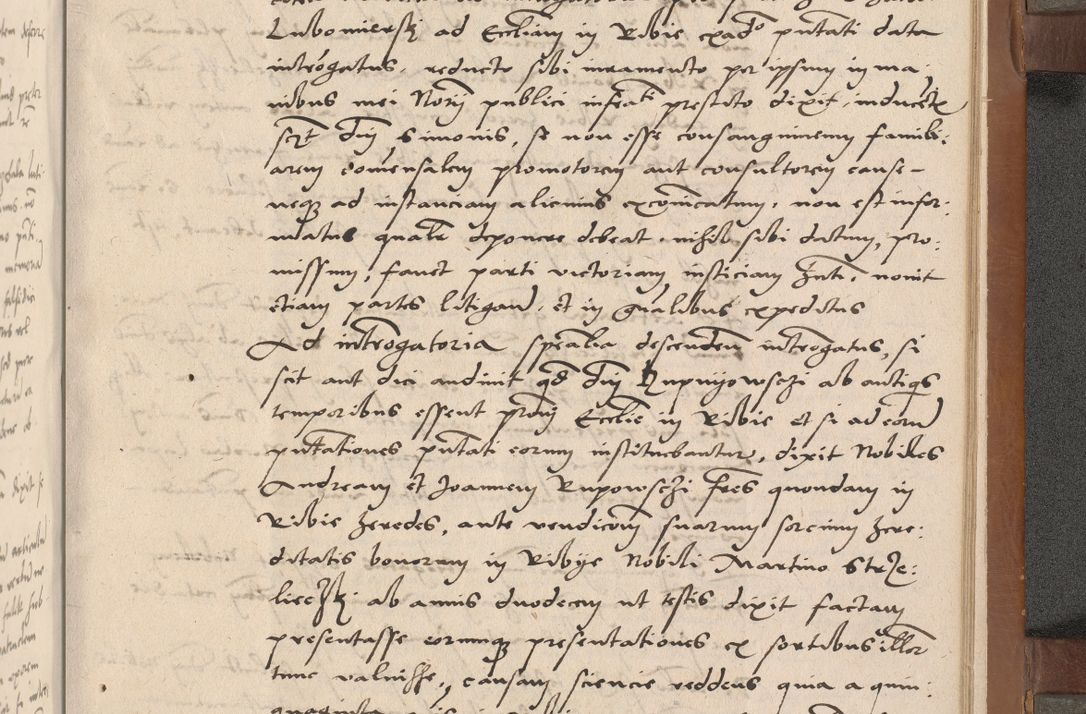 Lubomiersky ad Eccliam in Ribie exado pntati data
introgatus, reducto sibi iuramento per ipsum in ma:
nibus mei Norij publici infrati prestito dixit, inducetr
scrt dnj Simonis, se non esse consanguineum famili:
arem comensalem promotorem aut consultorem cause
neque ad instanciam alicuius excoicatum, non est infor:
matus qualr deponere debeat, nihil sibi datum, pro:
missum, fauet parti victoriam iusticiam hnti, nouit
etiam partes litigand, et in gnalibus expeditus
Ad introgatoria spealia descenden introgatus, si
scit aut dici audiuit qd dnj Rupnyowsczi ab antiqs
temporibus essent prònj Ecclie in Ribie et si ad eord
pntationes pntati eorum instituebantur, dixit Nobiles
Andream et Joannem Rupowsczi fres quondam in
Ribie heredes, ante vendicom suarum sorcium here:
ditatis bonorum in Ribye Nobili Martino Strze:
lieczky ab annis duodecem ut testis dixit factam
presentasse eorumque presentationes ex sortibus illor
tunc valuisse, causam sciencie reddens quia a quin: